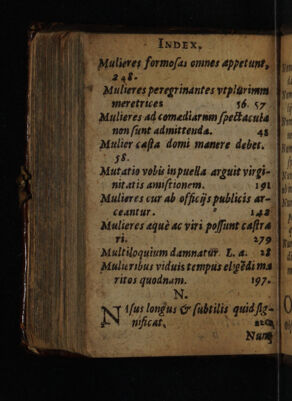 INDEX.
Mulieres formoſas omnes appetunt,
248.
Mulieres peregrinantes vtplurimm
meretrices 56. 57
Mulieres ad comœdiarum ſpectacula
non ſunt admittenda. 48
Mulier caſta domi manere debet.
58.
Mutatio vobis in puella arguit virgi-
nitatis amiſſionem. 191
Mulieres cur ab officijs publicis ar-
ceantur. 142
Mulieres aquè ac viri poſſunt caſtra
ri. 279
Multiloquium damnatūr. L. a. 28
Mulieribus viduis tempus eligēdi ma
ritos quodnam. 197.
N.
NIſus longus & ſubtilis quid ſig-
nificat.
Nunq